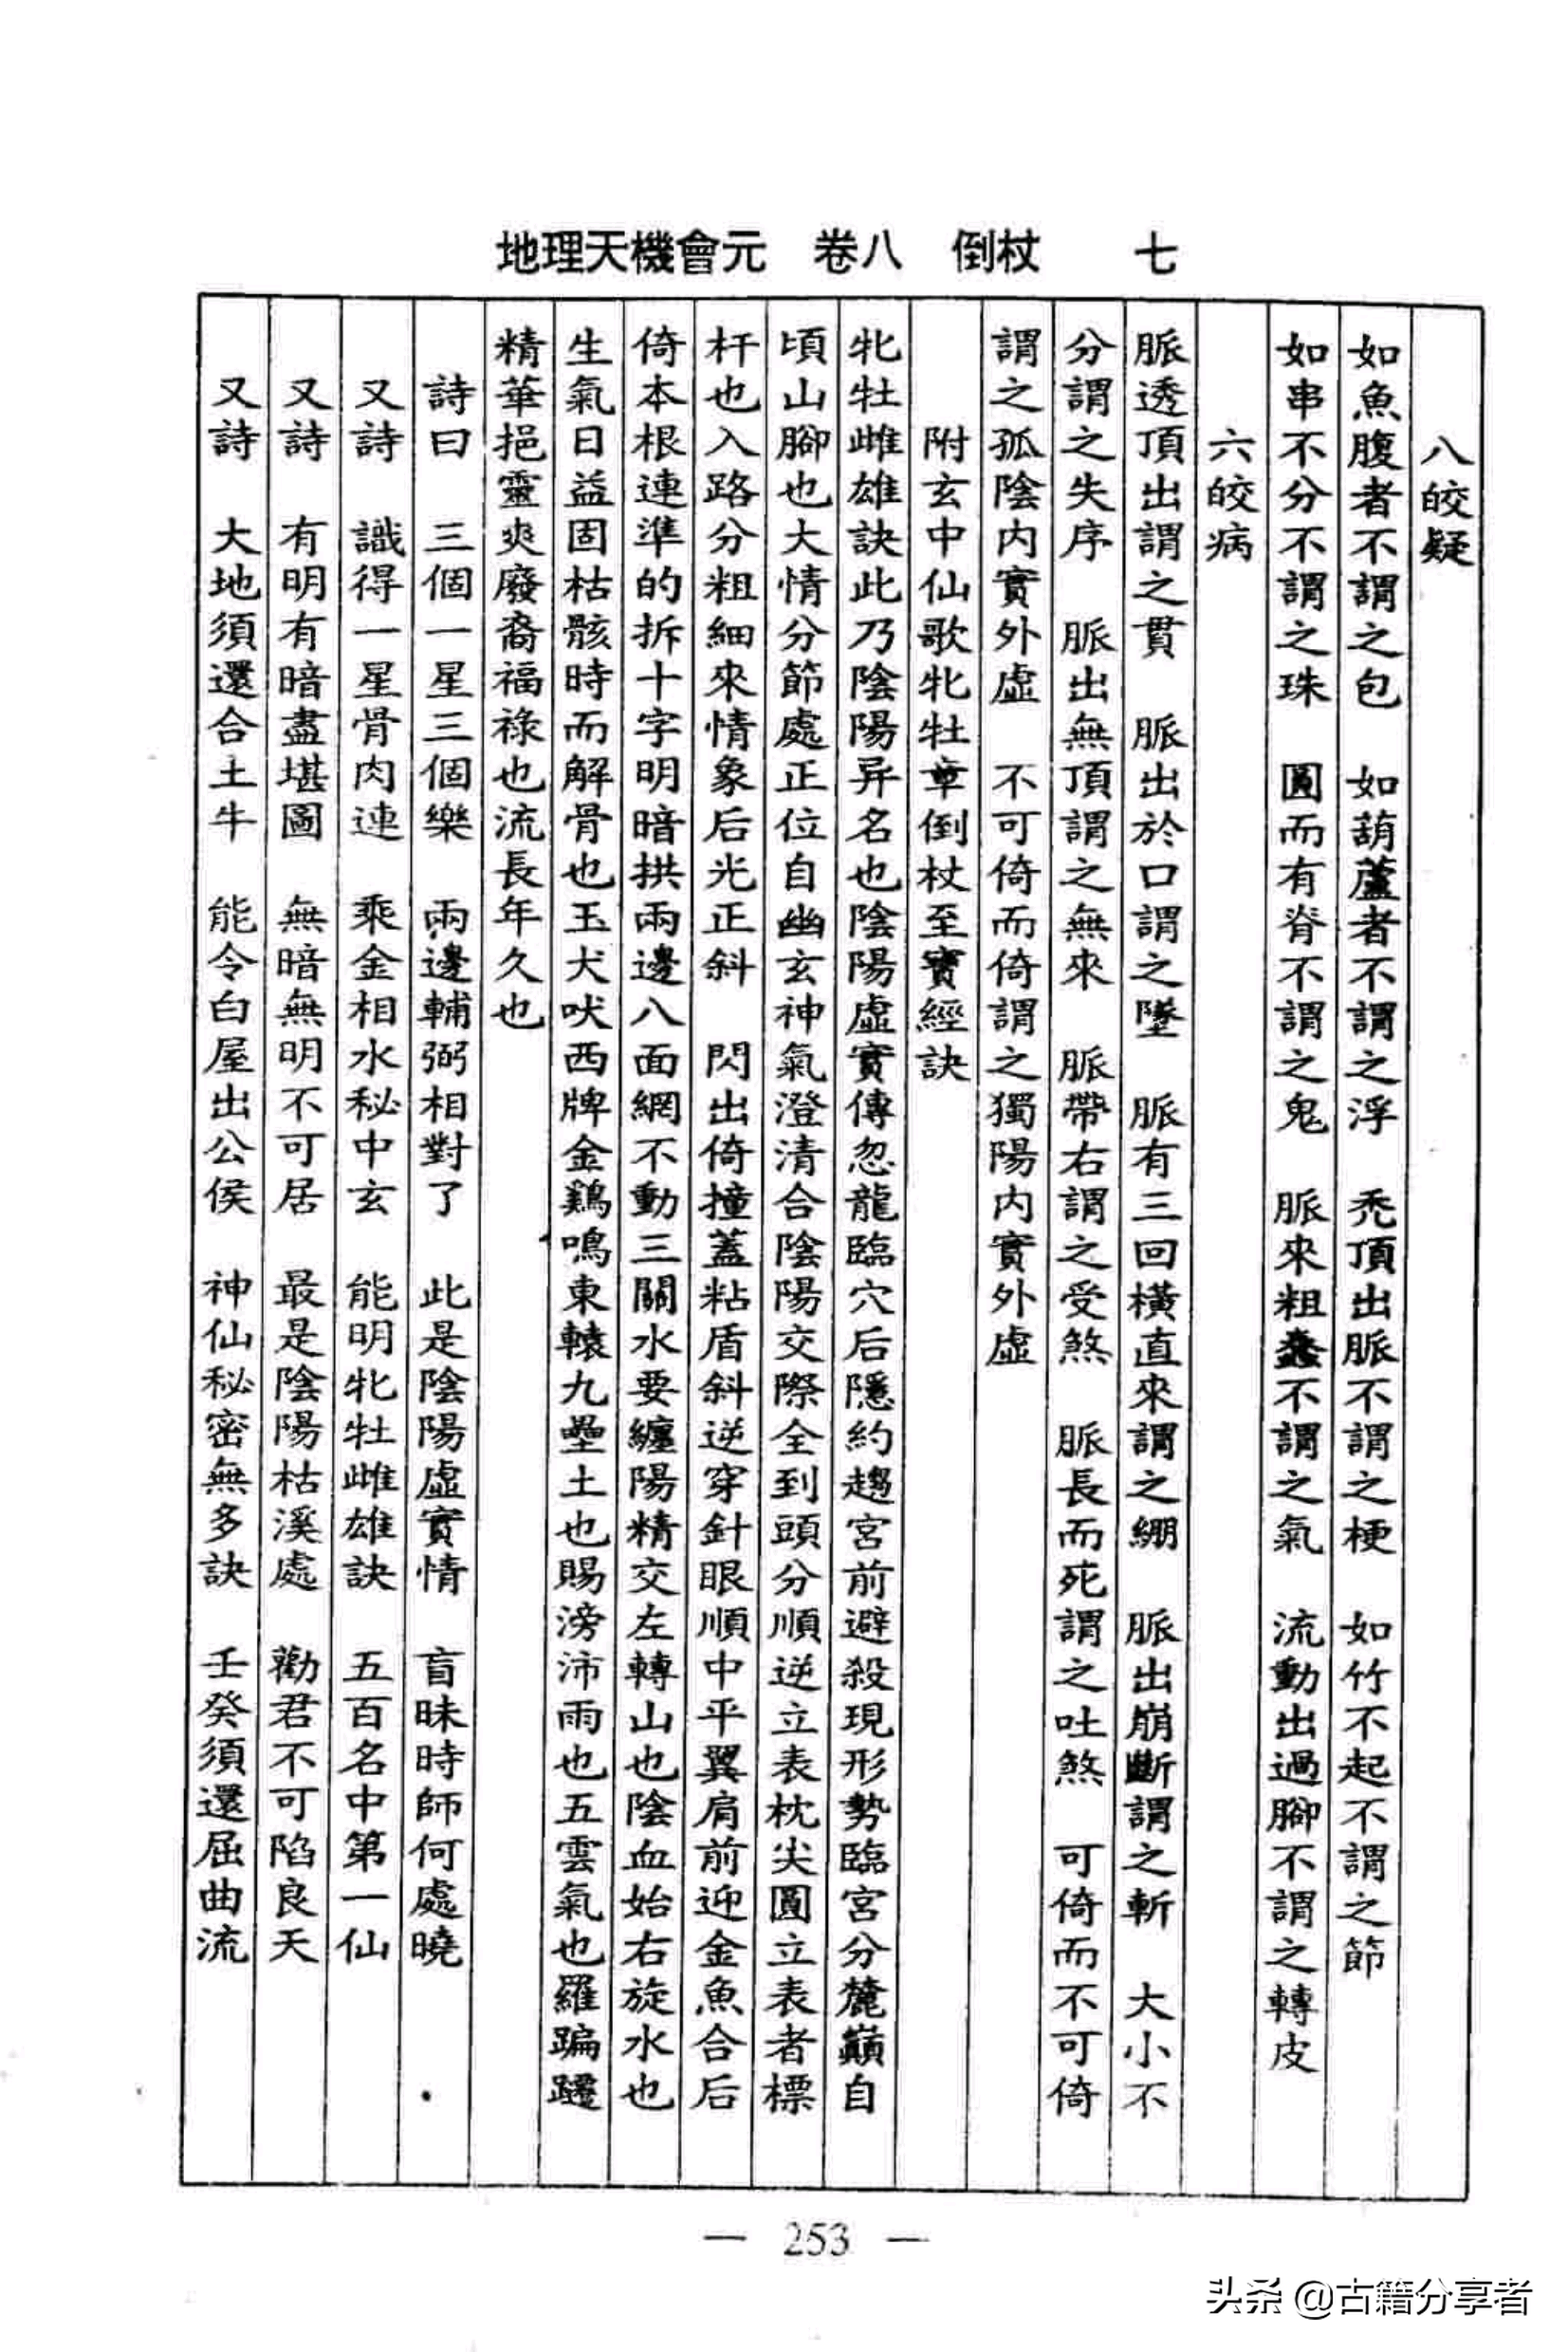 地理天機會元　卷八　倒杖　七
八皎疑
如魚腹者不謂之包　如葫蘆者不謂之浮　禿頂出脈不謂之梗　如竹不起不謂之節
如串不分不謂之珠　圓而有脊不謂之鬼　脈來粗蠢不謂之氣　流動出過腳不謂之轉皮
六皎病
脈透頂出謂之貫　脈出於口謂之墜　脈有三回橫直來謂之繃　脈出崩斷謂之斬　大小不
分謂之失序　脈出無頂謂之無來　脈帶右謂之受煞　脈長而死謂之吐煞　可倚而不可倚
謂之孤陰內實外虛　不可倚而倚謂之獨陽內實外虛
附玄中仙歌牝牡章倒杖至寶經訣
牝牡雌雄訣此乃陰陽异名也陰陽虛實傳忽龍臨穴后隱約趨宮前避殺現形勢臨宮分麓巔自
頃山腳也大情分節處正位自幽玄神氣澄清合陰陽交際全到頭分順逆立表枕尖圓立表者標
杆也入路分粗細來情象后光正斜　閃出倚撞蓋粘盾斜逆穿針眼順中平翼肩前迎金魚合后
倚本根連準的拆十字明暗拱兩邊八面網不動三關水要纏陽精交左轉山也陰血始右旋水也
生氣日益固枯骸時而解骨也玉犬吠西牌金鷄鳴東轅九壘土也賜滂沛雨也五雲氣也羅蹁躚
精華挹靈爽廢裔福祿也流長年久也
詩曰　三個一星三個樂　兩邊輔弼相對了　此是陰陽虛實情　盲昧時師何處曉
又詩　識得一星骨肉連　乘金相水秘中玄　能明牝牡雌雄訣　五百名中第一仙
又詩　有明有暗盡堪圖　無暗無明不可居　最是陰陽枯溪處　勸君不可陷良天
又詩　大地須還合土牛　能令白屋出公侯　神仙秘密無多訣　壬癸須還屈曲流
— 253 —
头条 @古籍分享者